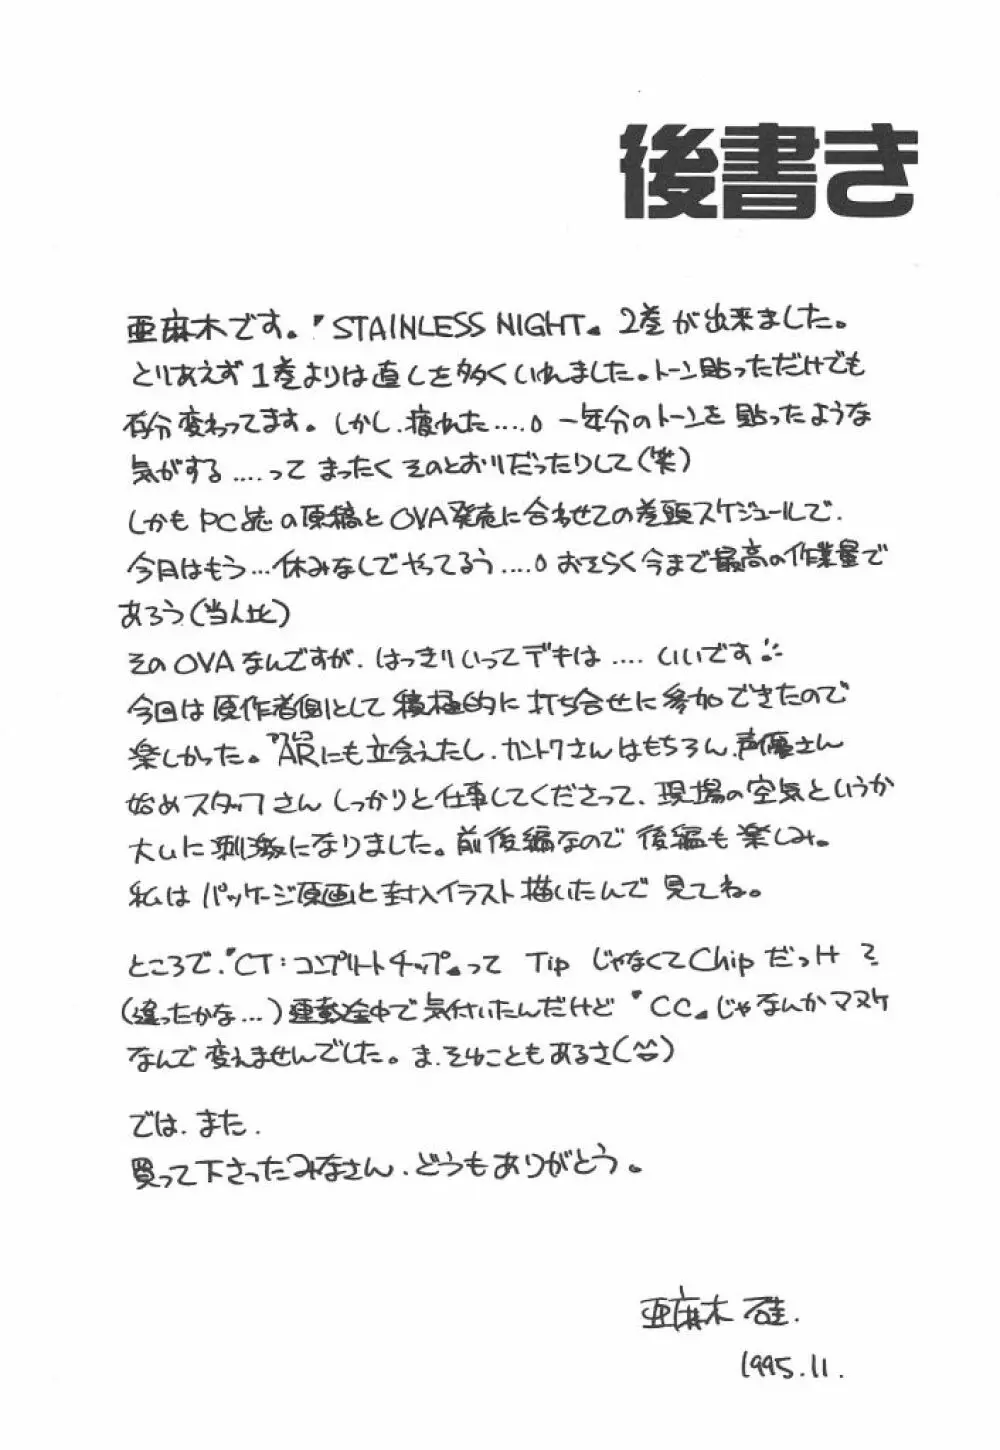 後書き
亜麻木です。『STAINLESS NIGHT』2巻が出来ました。
とりあえず1巻よりは直しを多くいれました。トーン貼っただけでも
存分変わってます。しかし、疲れた....。一年分のトーンを貼ったような
気がする....って まったく そのとおりだったりして(笑)
しかもPC誌の原稿とOVA発売に合わせての巻頭スケジュールで、
今月はもう...休みなしでやってるう....。おそらく今まで最高の作業量で
あろう(当人比)
そのOVAなんですが、はっきりいってデキは....いいです!!
今回は原作者側として積極的に打ち合せに参加できたので
楽しかった。アフレコ ARにも立会えたし、カントクさんはもちろん、声優さん
始めスタッフさん しっかりと仕事してくださって、現場の空気というか
大いに刺激になりました。前後編なので後編も楽しみ。
私はパッケージ原画と封入イラスト描いたんで 見てね。
ところで、『CT:コンプリートチップ』って Tip じゃなくて Chip だっけ?
(違ったかな...)連載途中で気付いたんだけど『CC』じゃなんかマヌケ
なんで変えませんでした。ま、そんなこともあるさ(^^)
では、また、
買って下さったみなさん、どうもありがとう。
亜麻木 硅.
1995.11.